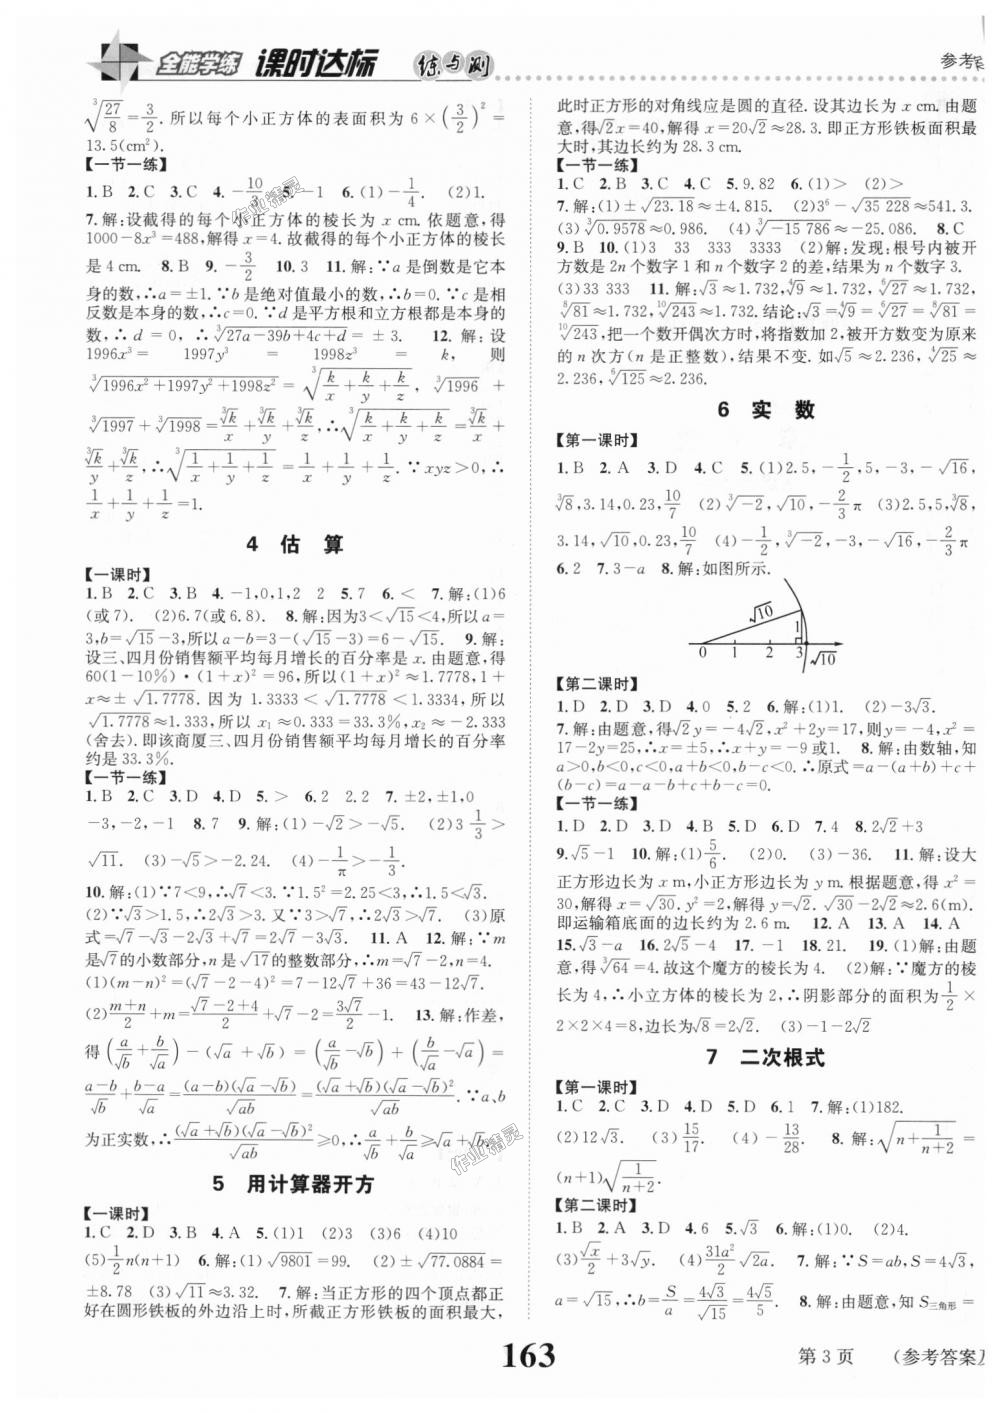 全能学练 课时达标 练与测
参考
∛(27/8)=3/2. 所以每个小正方体的表面积为 6×(3/2)²=
13.5(cm²).
【一节一练】
1.B 2.C 3.C 4.-10/3 5.-1 6.(1)-1/4. (2)1.
7.解:设截得的每个小正方体的棱长为 x cm. 依题意,得
1000-8x³=488,解得 x=4. 故截得的每个小正方体的棱长
是 4 cm. 8.B 9.-3/2 10.3 11.解:∵a 是倒数是它本
身的数,∴a=±1.∵b 是绝对值最小的数,∴b=0.∵c 是相
反数是本身的数,∴c=0.∵d 是平方根和立方根都是本身的
数,∴d = 0,∴∛(27a-39b+4c+d)=±3. 12.解:设
1996x³ = 1997y³ = 1998z³ = k, 则
∛(1996x²+1997y²+1998z²)=∛(k/x+k/y+k/z), ∛1996 +
∛1997+∛1998=∛k/x+∛k/y+∛k/z,∴∛(k/x+k/y+k/z)=∛k/x+
∛k/y+∛k/z,∴∛(1/x+1/y+1/z)=1/x+1/y+1/z.∵xyz>0,∴
1/x+1/y+1/z=1.
4 估 算
【一课时】
1.B 2.C 3.B 4.-1,0,1,2 2 5.7 6.< 7.解:(1)6
(或7). (2)6.7(或6.8). 8.解:因为3<√15<4,所以 a=
3,b=√15-3,所以 a-b=3-(√15-3)=6-√15. 9.解:
设三、四月份销售额平均每月增长的百分率是 x. 由题意,得
60(1-10%)·(1+x)²=96,所以(1+x)²≈1.7778,1+
x≈±√1.7778. 因为 1.3333<√1.7778<1.3334,所以
√1.7778≈1.333,所以 x₁≈0.333=33.3%,x₂≈-2.333
(舍去). 即该商厦三、四月份销售额平均每月增长的百分率
约是 33.3%.
【一节一练】
1.B 2.C 3.D 4.D 5.> 6.2 2.2 7.±2,±1,0
-3,-2,-1 8.7 9.解:(1)-√2>-√5. (2)3 1/3>
√11. (3)-√5>-2.24. (4)-1/π>-1/3.
10.解:(1)∵7<9,∴√7<3.∵1.5²=2.25<3,∴1.5<√3.
(2)∵√3>1.5,∴2√3>3. 又∵3>√7,∴2√3>√7. (3)原
式=√7-√3-2√3+√7=2√7-3√3. 11.A 12.解:∵m
是√7的小数部分,n 是√17的整数部分,∴m=√7-2,n=4.
(1)(m-n)²=(√7-2-4)²=7-12√7+36=43-12√7.
(2)(m+n)/2+m=(√7-2+4)/2+√7-2=3√7/2-1. 13.解:作差,
得(a/√b+b/√a)-(√a+√b)=(a/√b-√b)+(b/√a-√a)=
(a-b)/√b+(b-a)/√a=(a-b)(√a-√b)/√ab=(√a+√b)(√a-√b)²/√ab.∵a、b
为正实数,∴(√a+√b)(√a-√b)²/√ab≥0,∴a/√b+b/√a≥√a+√b.
5 用计算器开方
【一课时】
1.C 2.D 3.B 4.A 5.(1)1 (2)3 (3)6 (4)10
(5)1/2 n(n+1) 6.解:(1)√9801=99. (2)±√77.0884=
±8.78 (3)√11≈3.32. 7.解:当正方形的四个顶点都正
好在圆形铁板的外边沿上时,所截正方形铁板的面积最大,
此时正方形的对角线应是圆的直径. 设其边长为 x cm. 由题
意,得√2x=40,解得 x=20√2≈28.3. 即正方形铁板面积最
大时,其边长约为 28.3 cm.
【一节一练】
1.C 2.B 3.C 4.C 5.9.82 6.(1)> (2)>
7.解:(1)±√23.18≈±4.815. (2)3⁶-√35 228≈541.3.
(3)∛0.9578≈0.986. (4)∛-15 786≈-25.086. 8.C
9.B 10.(1)3 33 333 3333 (2)解:发现:根号内被开
方数是 2n 个数字 1 和 n 个数字 2 的差,结果为 n 个数字 3.
(3)33 333 11.解:√3≈1.732,⁴√9≈1.732,⁶√27≈1.732,
⁸√81≈1.732,¹⁰√243≈1.732. 结论:√3=⁴√9=⁶√27=⁸√81=
¹⁰√243,把一个数开偶次方时,将指数加 2,被开方数变为原来
的 n 次方(n 是正整数),结果不变. 如√5≈2.236,⁴√25≈
2.236,⁶√125≈2.236.
6 实 数
【第一课时】
1.B 2.A 3.D 4.C 5.(1)2.5,-1/2,5,-3,-√16,
∛8,3.14,0.23,10/7 (2)∛-2,√10,-2/3π (3)2.5,5,∛8,
3.14,√10,0.23,10/7 (4)-1/2,∛-2,-3,-√16,-2/3π
6.2 7.3-a 8.解:如图所示.
√10
1
0 1 2 3 √10
【第二课时】
1.D 2.D 3.D 4.0 5.2 6.解:(1)1. (2)-3√3.
7.解:由题意,得√2y=-4√2,x²+2y=17,则 y=-4,x²=
17-2y=25,∴x=±5,∴x+y=-9或1. 8.解:由数轴,知
a>0,b<0,c<0,a+b<0,b-c<0.∴原式=a-(a+b)+c+
(b-c)=a-a-b+c+b-c=0.
【一节一练】
1.D 2.D 3.D 4.B 5.D 6.D 7.4 8.2√2+3
9.√5-1 10.解:(1)5/6. (2)0. (3)-36. 11.解:设大
正方形边长为 x m,小正方形边长为 y m. 根据题意,得 x²=
30,解得 x=√30. y²=2,解得 y=√2. √30-2√2≈2.6(m).
即运输箱底面的边长约为 2.6 m. 12.A 13.A 14.A
15.√3-a 16.2√5-4 17.-1 18.21. 19.(1)解:由题
意,得∛64=4. 故这个魔方的棱长为 4. (2)解:∵魔方的棱
长为 4,∴小立方体的棱长为 2,∴阴影部分的面积为1/2×
2×2×4=8,边长为√8=2√2. (3)-1-2√2
7 二次根式
【第一课时】
1.C 2.C 3.D 4.D 5.D 6.1 7.解:(1)182.
(2)12√3. (3)15/17. (4)-13/28. 8.解:√(n+1/(n+2))=
(n+1)√(1/(n+2)).
【第二课时】
1.B 2.D 3.D 4.6 5.√3 6.解:(1)0. (2)4.
(3)√x/2+3√y. (4)31a²/2 √2a. 7.解:∵S=ab,S=4√3,
a=√15,∴b=S/a=4√3/√15=4√5/5. 8.解:由题意,知 S三角形=
163
第 3 页 (参考答案及